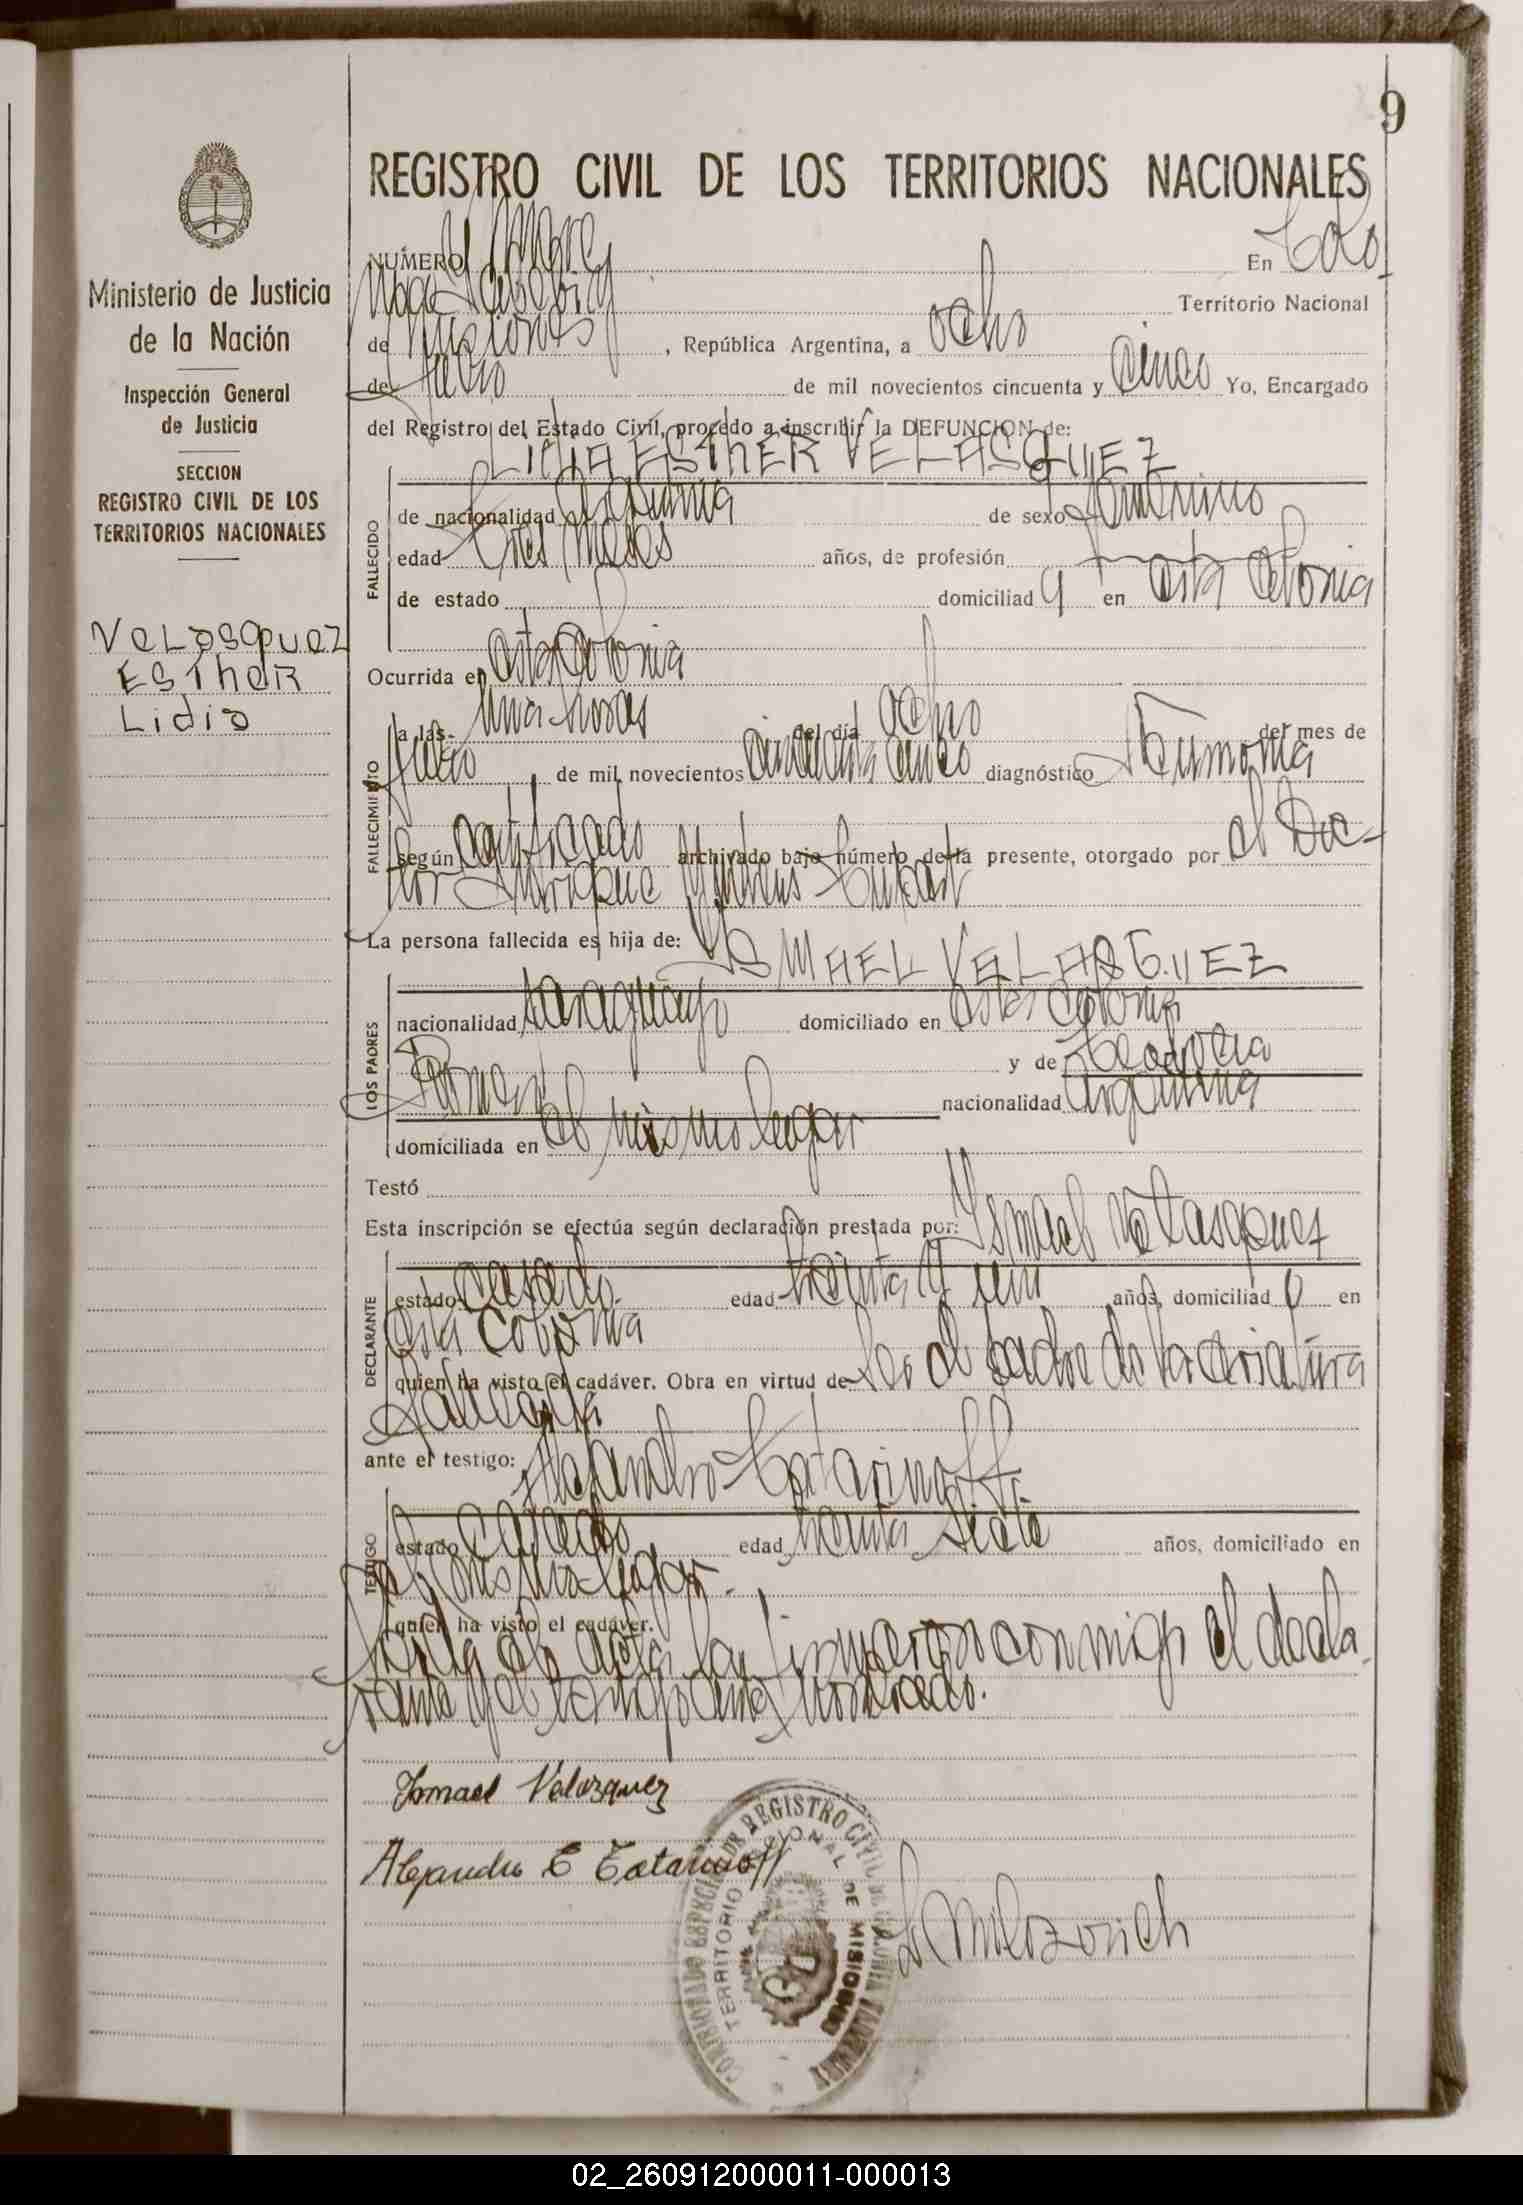 9
REGISTRO CIVIL DE LOS TERRITORIOS NACIONALES
Ministerio de Justicia
de la Nación
Inspección General
de Justicia
SECCION
REGISTRO CIVIL DE LOS
TERRITORIOS NACIONALES
VELASQUEZ
ESTHER
Lidia
NÚMERO En Colo-
Territorio Nacional
de Misiones, República Argentina, a ocho
de Julio de mil novecientos cincuenta y cinco Yo, Encargado
del Registro del Estado Civil, procedo a inscribir la DEFUNCION de:
LIDIA ESTHER VELASQUEZ
FALLECIDO
de nacionalidad Argentina de sexo femenino
edad tres meses años, de profesión
de estado domiciliad a en esta Colonia
Ocurrida en esta Colonia
FALLECIMIENTO
a las una horas del día ocho del mes de
Julio de mil novecientos cincuenta cinco diagnóstico Neumonia
según certificado archivado bajo número de la presente, otorgado por el Doc-
tor Enrique
La persona fallecida es hija de: YSMAEL VELASQUEZ
LOS PADRES
nacionalidad Paraguayo domiciliado en esta Colonia
y de Teodora
nacionalidad Argentina
domiciliada en el mismo lugar
Testó
Esta inscripción se efectúa según declaración prestada por: Ysmael Velasquez
DECLARANTE
estado casado edad treinta y un años, domiciliad o en
esta Colonia
quien ha visto el cadáver. Obra en virtud de ser el padre de la criatura
fallecida
ante el testigo: Alejandro Tatarinoff
TESTIGO
estado casado edad treinta siete años, domiciliado en
el mismo lugar.
quien ha visto el cadáver.
Leida el acta la firmaron conmigo el decla-
rante y el testigo arriba nombrado.
Ismael Velazquez
Alejandro E Tatarinoff
REGISTRO CIVIL
TERRITORIO NACIONAL DE MISIONES
02_260912000011-000013